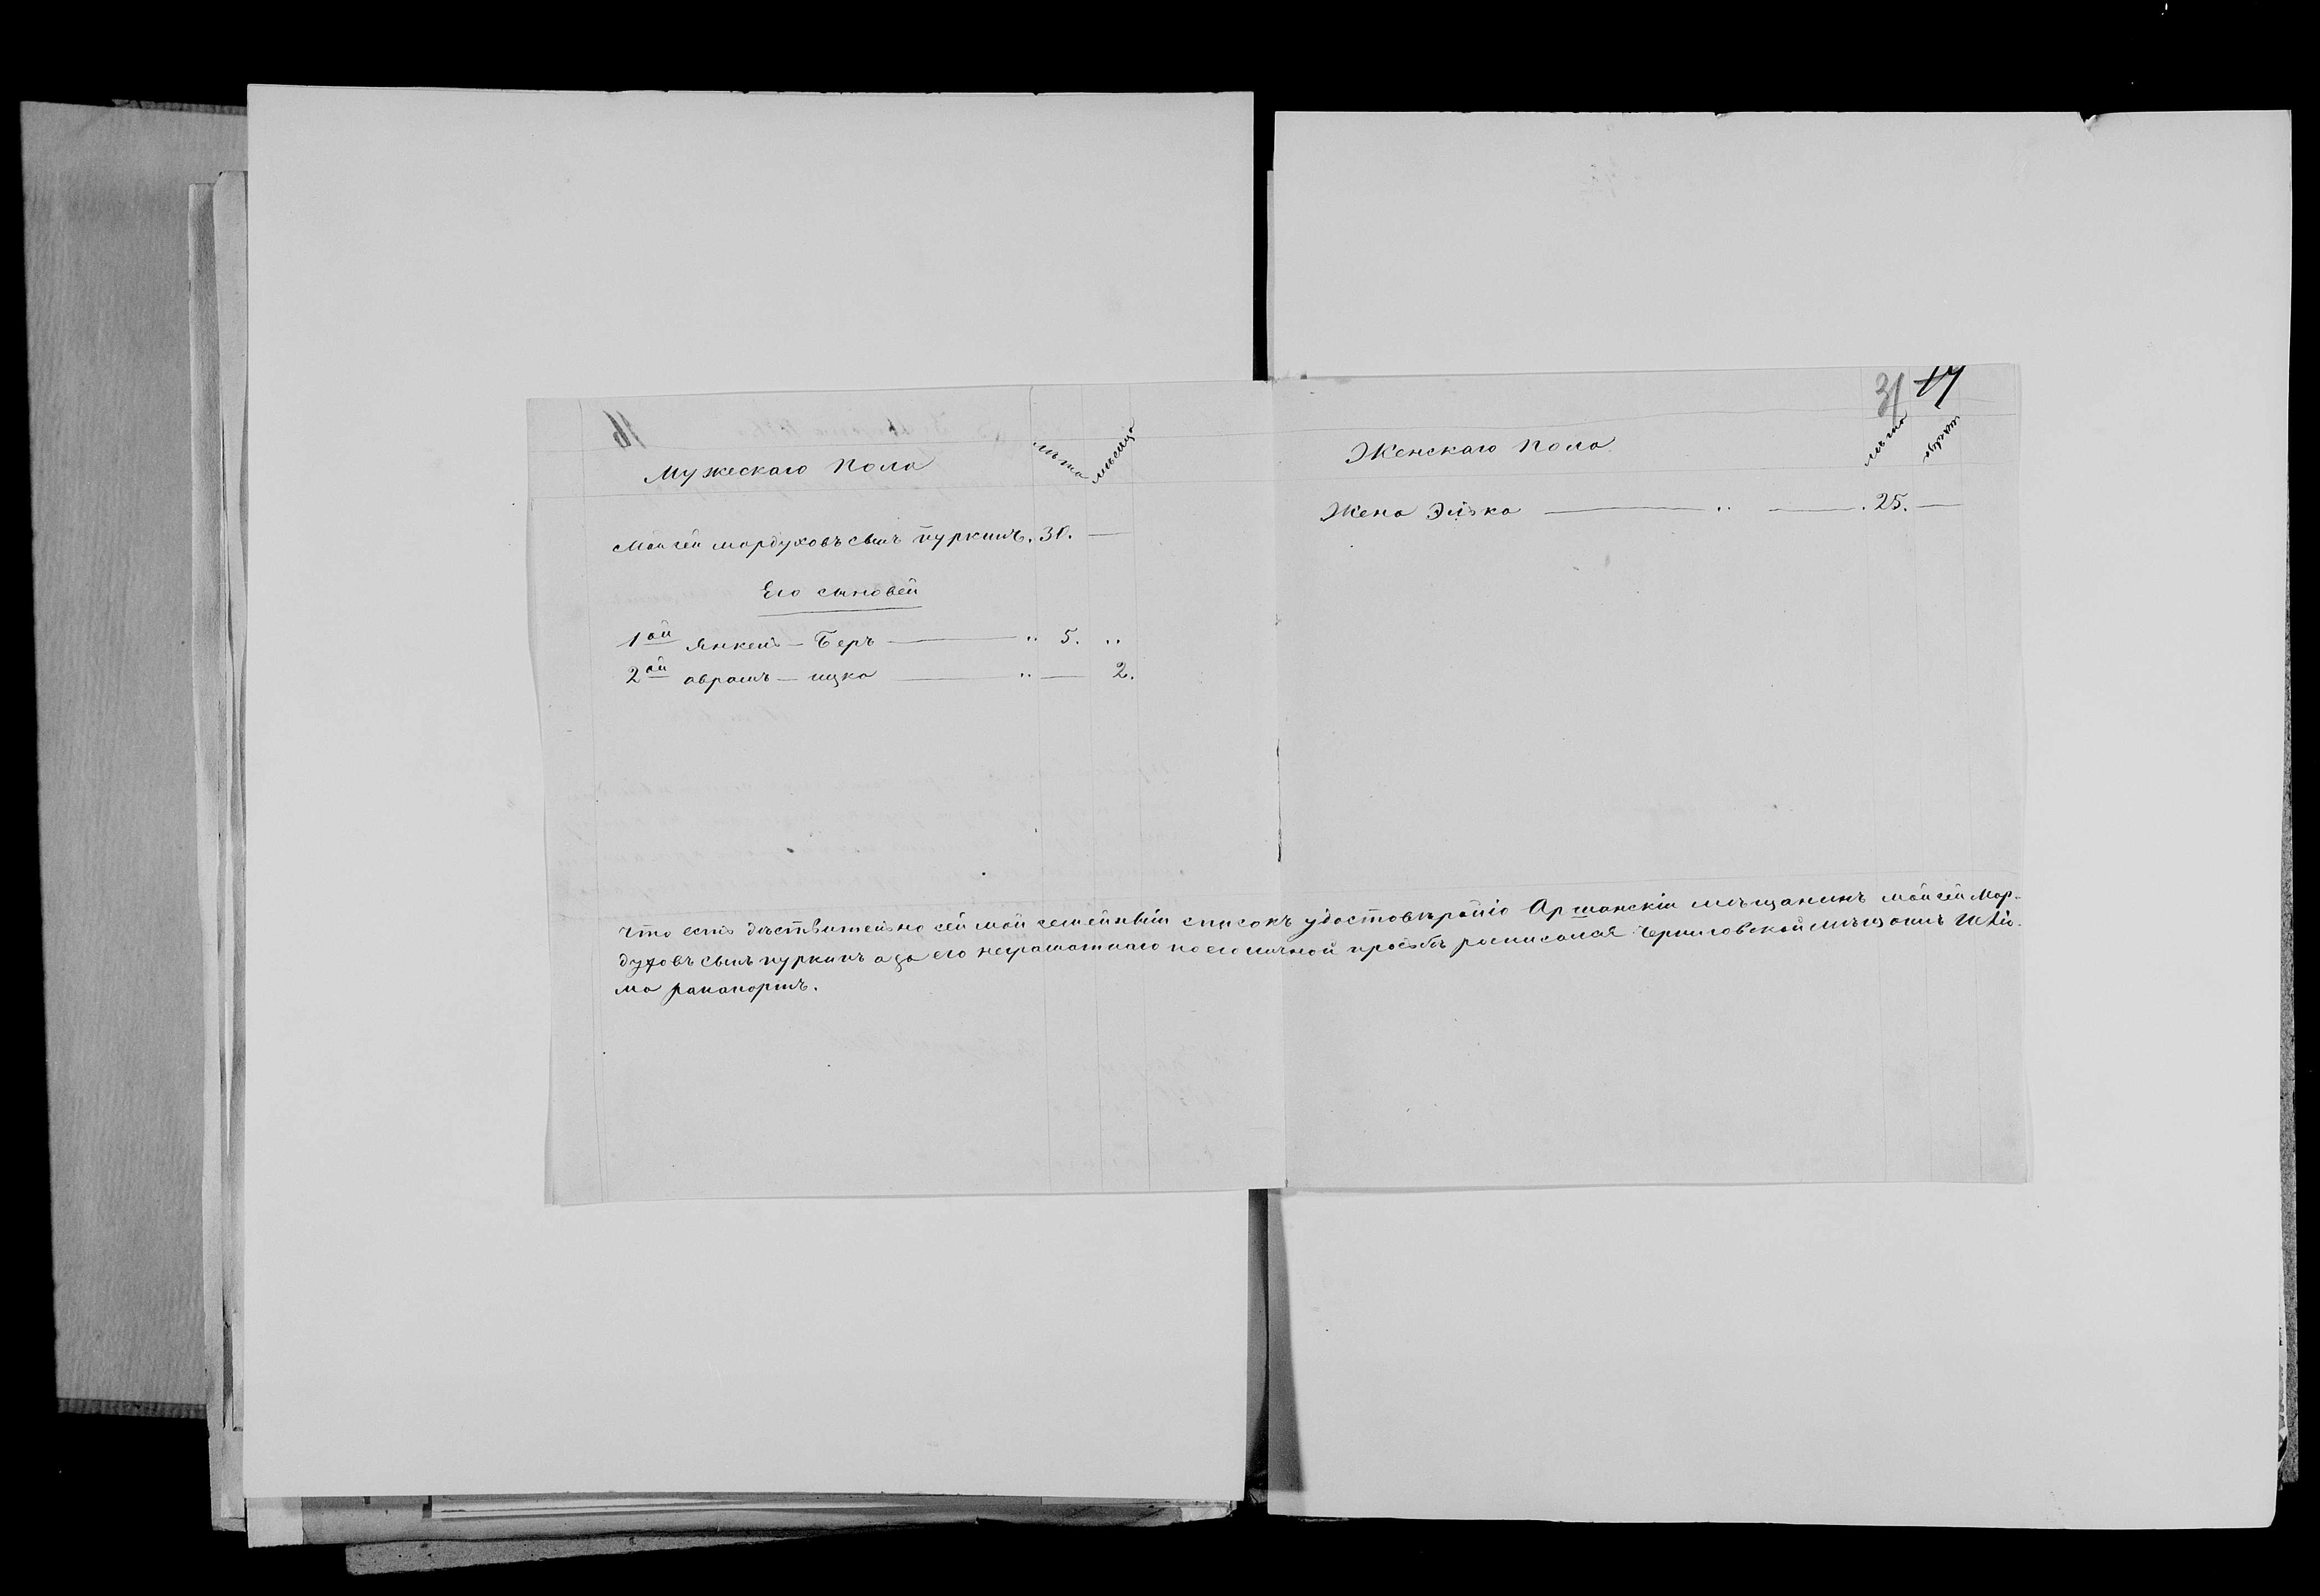 31 17
Мужескаго пола
лѣта
мѣсяца
Мойсей мордуховъ сынъ пуркинъ. 30. —
Его сыновей
1ой Янкель — Беръ — „ 5. „
2ой абрамъ — ицка — „ — 2.
Женскаго пола
лѣта
Жена Элька — „ — . 25. —
Что есть дѣствительно сей мой семейный списокъ удостовѣряйю Аршанскій мѣщанинъ мойсей Мор-
духовъ сынъ пуркинъ а за его неграматнаго по его личной прозьбѣ росписался Черниговской мѣщанинъ Шлiо-
ма рапапортъ.